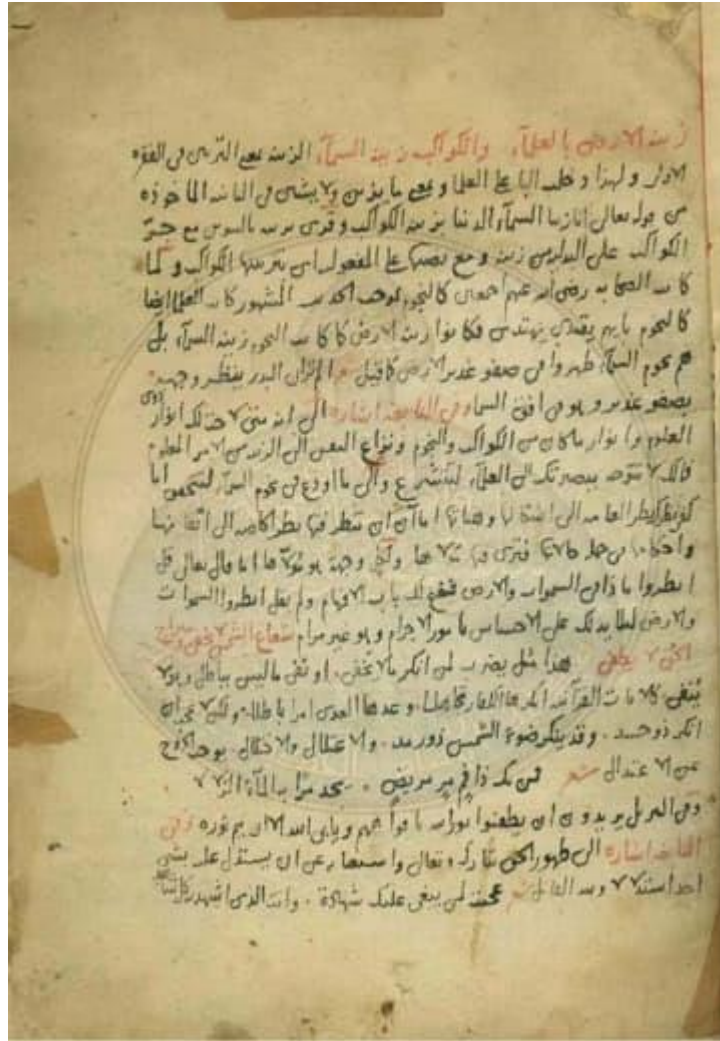 زينة الارض بالعلماء والكواكب زينة السماء الزينة بمعنى التزيين في الفقرة
الاولى ولهذا دخلت الباء على العلماء وبمعنى ما يزين به الشيء في الثانية الماخوذة
من قوله تعالى انا زينا السماء الدنيا بزينة الكواكب وقرئ بزينة بالتنوين مع جر
الكواكب على البدل من زينة ومع نصبها على المفعول اى بتزيينها الكواكب وكما
كانت الصحابة رضى الله عنهم اجمعين كالنجوم بموجب الحديث المشهور كانت العلماء ايضا
كالنجوم بايهم يقتدى يهتدى فكانوا زينة الارض كما كانت النجوم زينة السماء بل
هم نجوم السماء ظهروا فى صفو غدير الارض كما قيل شعر الم تر ان البدر ينظر وجهه
بصفو غدير وهو فى افق السما وفى الفاتحة اشارة الى انه متى لاحت لك انوار
العلوم وانوار ما كان من الكواكب والنجوم ونزاع النفس الى الزينة من الامر المعلوم
فانك لا تتوجه ببصرتك الى العلماء والى ما اودع فى نجوم السماء
كونظر العامة الى اشكالها وهيئاتها اما آن ان تنظر فيها نظر الخاصة الى اتقانها
واحكامها من جلالاتها فترى فيها ولكل وجهة هو موليها اما قال تعالى قل
انظروا ماذا فى السموات والارض ففتح لك باب الافهام ولم يقل انظروا السموات
والارض لئلا يدلك على الاحساس بامور الاجرام وهو غير مرام شعاع الشمس لا يخفى ونور
الحق لا يطفى هذا مثل يضرب لمن انكر ما لا يخفى او نفى ما ليس بباطل وهو لا
ينفى كالآيات القرآنية انكرها الكفار وعدها العدى امرا باطلا ولكن لا عجب ان
انكر ذو حسد وقد ينكر ضوء الشمس ذو رمد والاعتلال والاختلال يوجب الخروج
عن الاعتدال شعر فمن يك ذا فم مر مريض يجد مرا به الماء الزلالا
وفى التنزيل يريدون ان يطفئوا نور الله بافواههم ويابى الله الا ان يتم نوره وفى
الفاتحة اشارة الى ظهور الحق تبارك وتعالى واستغنائه عن ان يستدل عليه بشىء
احد استدلالا ولله القائل شعر عجبت لمن يبغى عليك شهادة وانت الذى اشهدته كل شاهد